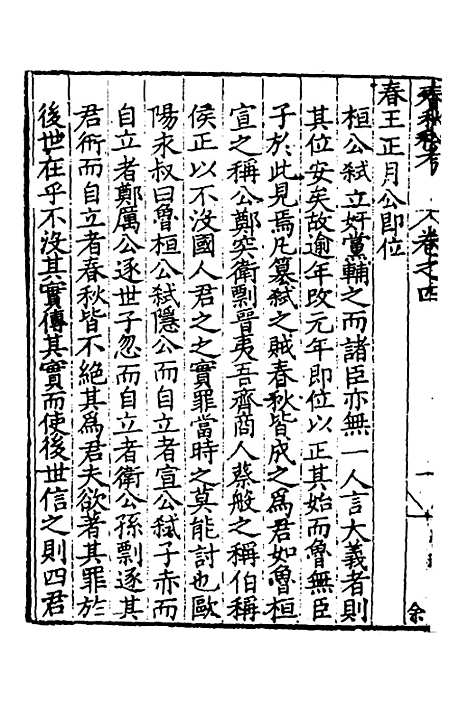 春王正月公即位
桓公弑立奸黨輔之而諸臣亦無一人言大義者則
其位安矣故逾年改元年即位以正其始而魯無臣
子於此見焉凡簒弑之賊春秋皆成之為君如魯桓
宣之稱公鄭突衛剽晉夷吾齊商人蔡般之稱伯稱
侯正以不沒國人君之之實罪當時之莫能討也歐
陽永叔曰魯桓公弑隱公而自立者宣公弑子赤而
自立者鄭厲公逐世子忽而自立者衛公孫剽逐其
君衎而自立者春秋皆不絕其為君夫欲著其罪於
後世在乎不沒其實傳其實而使後世信之則四君
卷之四
一
余